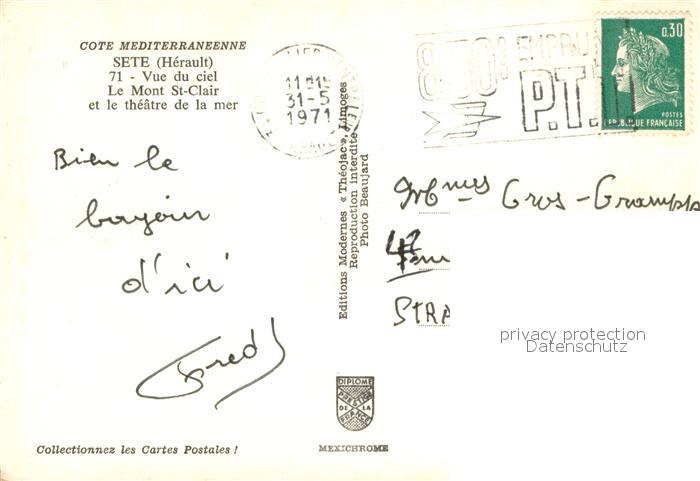 COTE MEDITERRANEENNE
SETE (Hérault)
71 - Vue du ciel
Le Mont St-Clair
et le théâtre de la mer
Bien le
bonjour
d'ici
Fred
Collectionnez les Cartes Postales !
11H15
31-5
1971
Editions Modernes « Théojac », Limoges
Reproduction Interdite
Photo Beaujard
DIPLOME
PRESTIGE
DE LA
FRANCE
MEXICHROME
EMPRUNT
P.T.T
0,30
POSTES
REPUBLIQUE FRANÇAISE
Gros -
47
STRA
privacy protection
Datenschutz